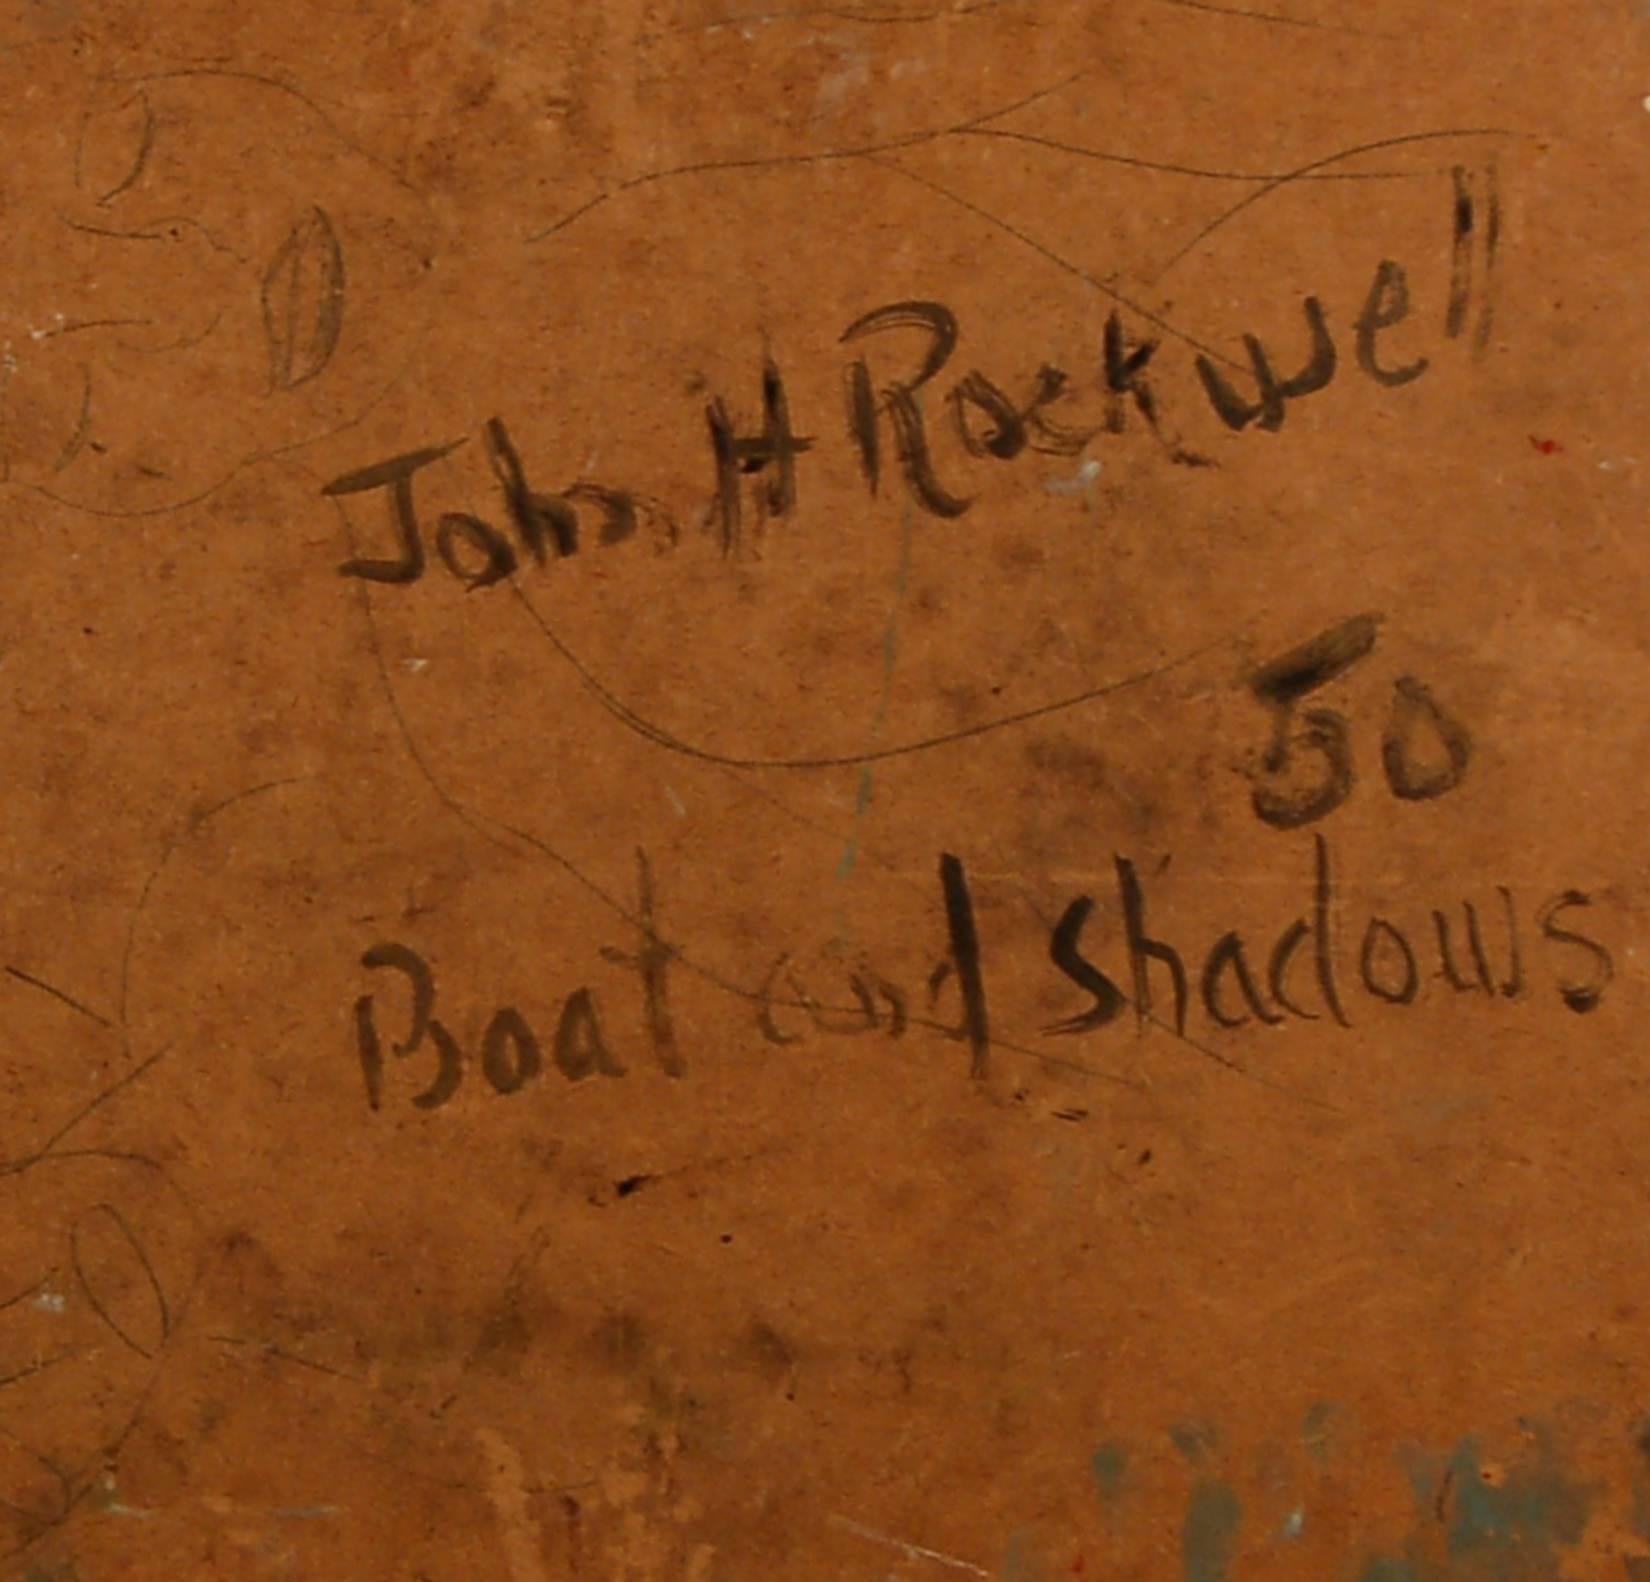 John H Rockwell
50
Boat and Shadows